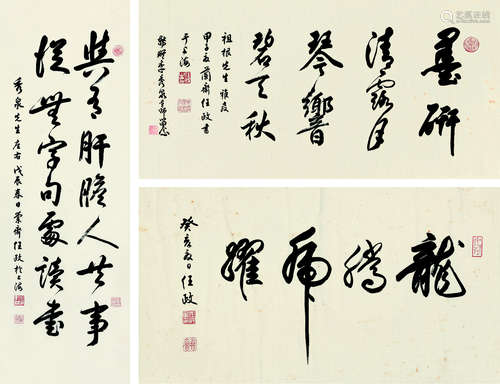 與有肝膽人共事
從無字句處讀書
秀泉先生左右戊辰春日蘭齋任政於上海
墨研
清露月
琴響
碧天秋
祖根先生雅
甲子夏蘭齋任政書
于上海
龍騰虎躍
癸亥夏日任政